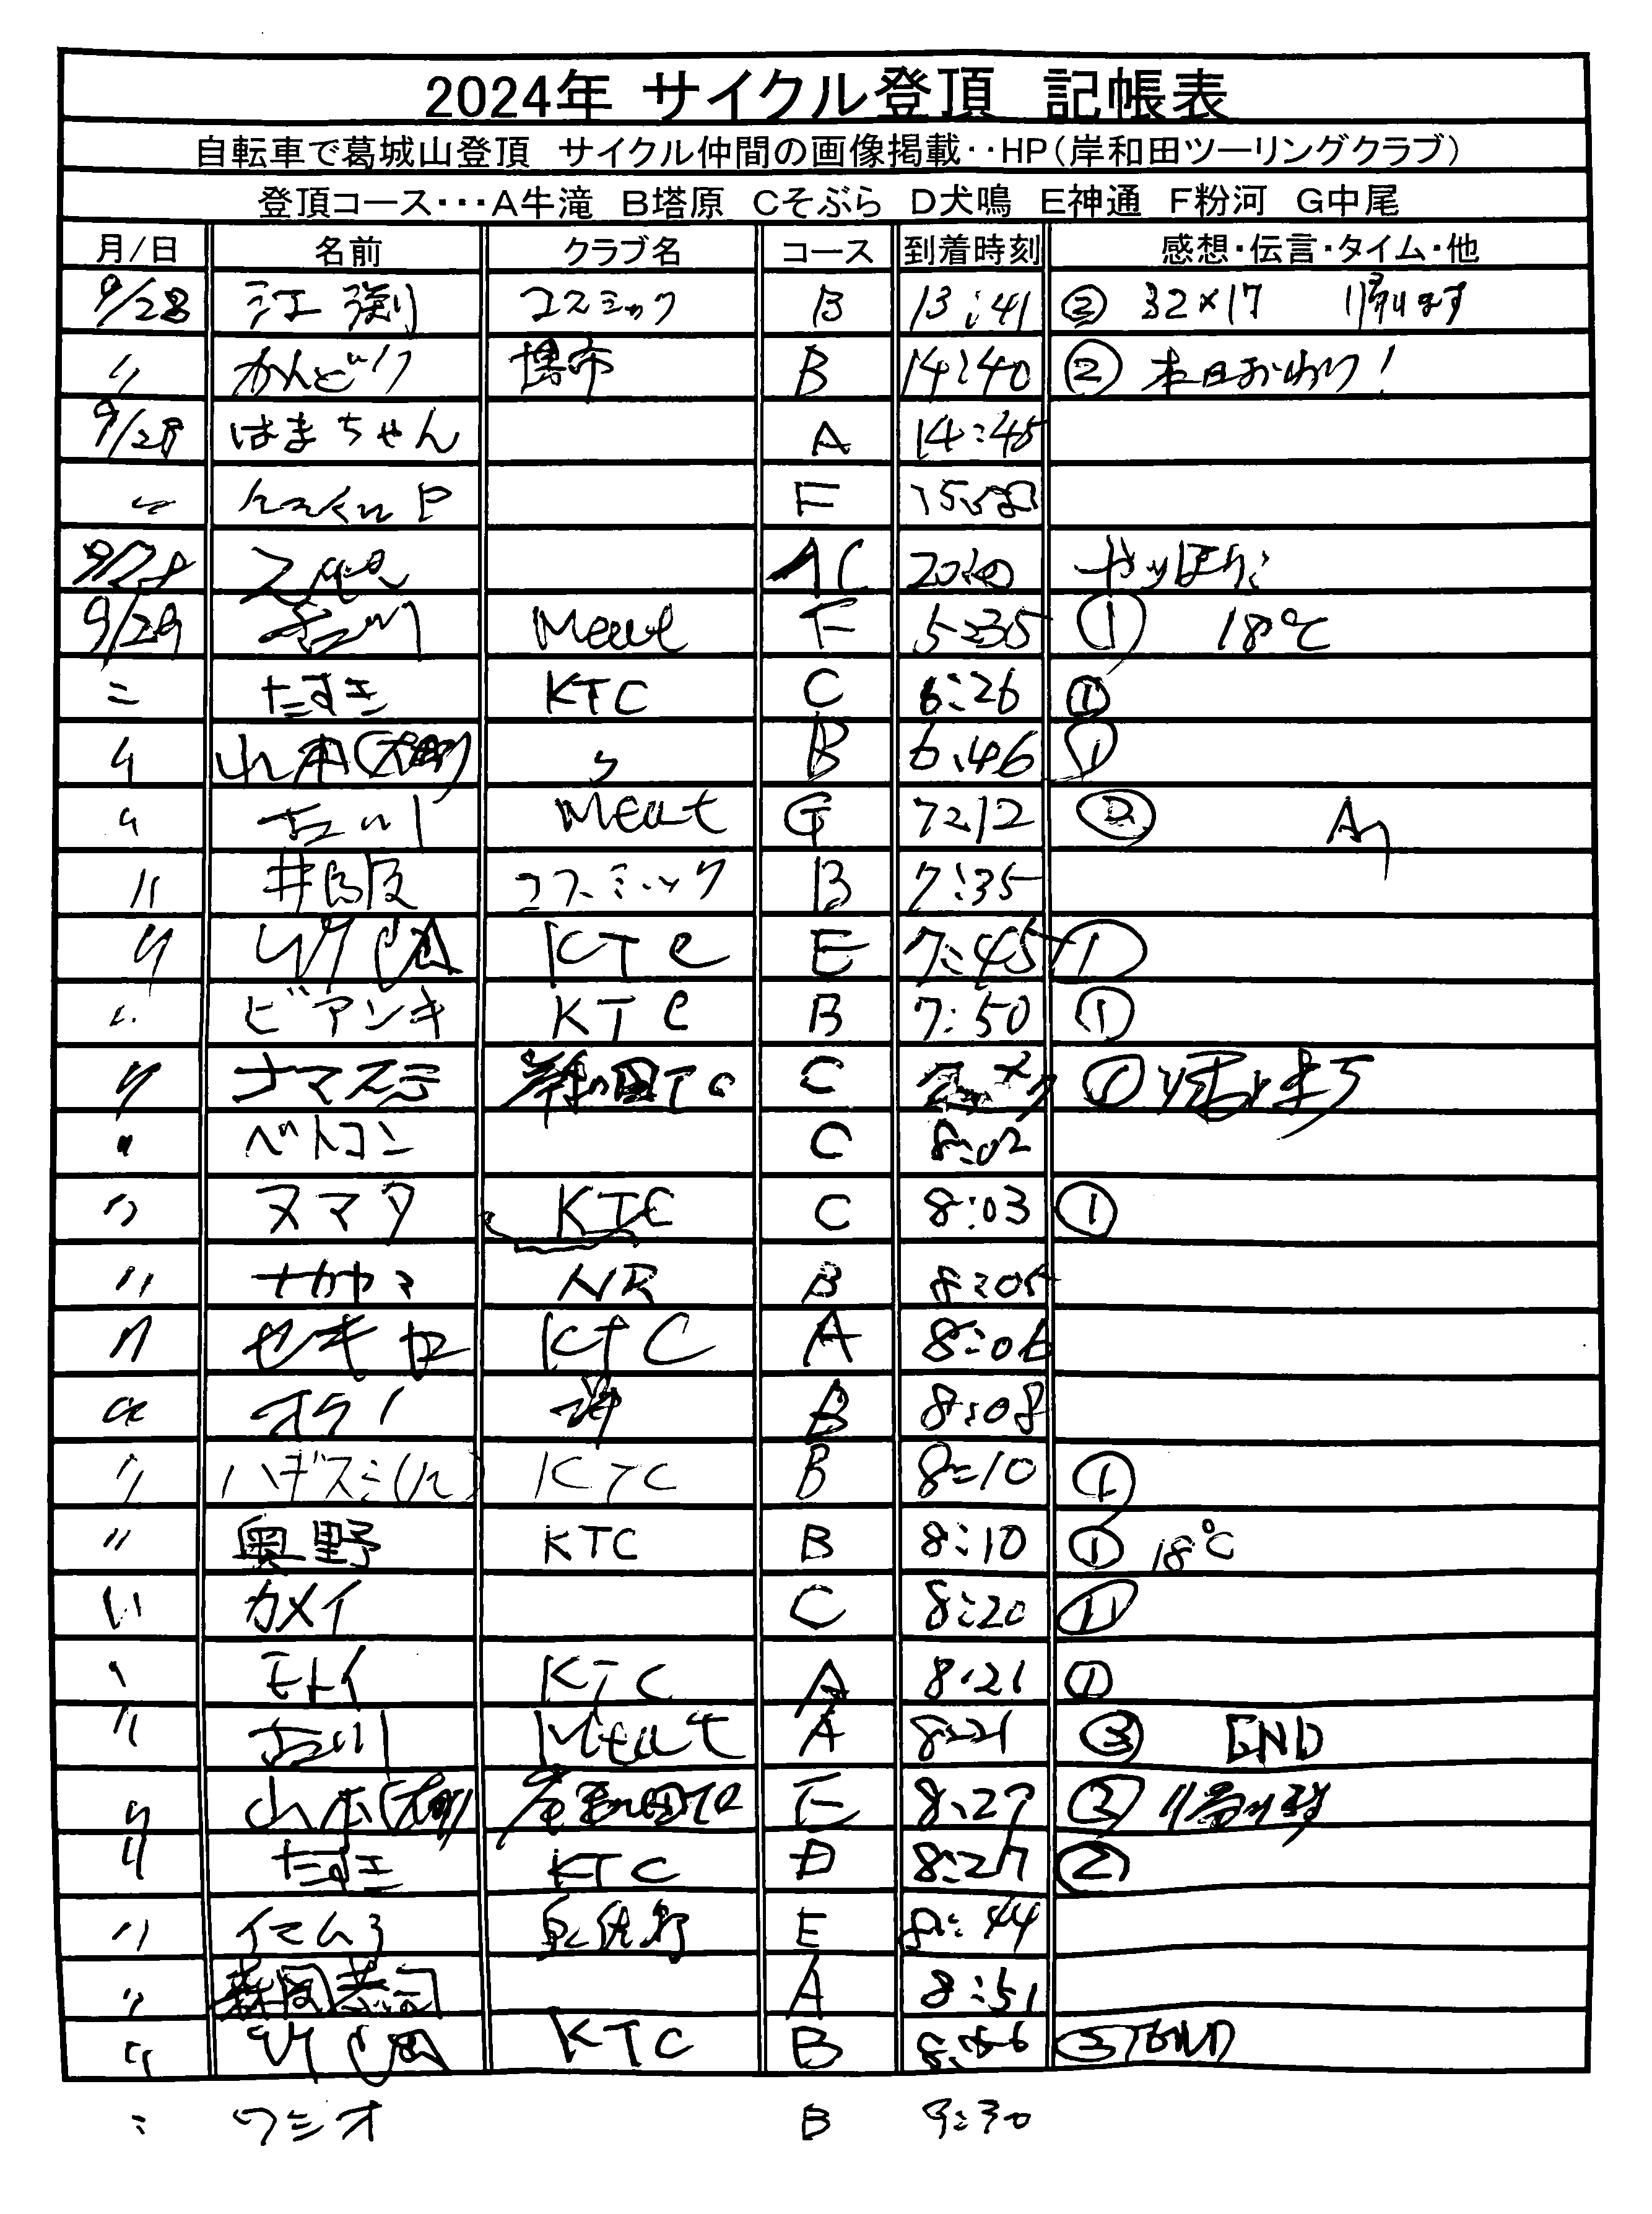 2024年 サイクル登頂 記帳表
自転車で葛城山登頂 サイクル仲間の画像掲載‥HP(岸和田ツーリングクラブ)
登頂コース・・・A牛滝 B塔原 Cそぶら D犬鳴 E神通 F粉河 G中尾
月/日 名前 クラブ名 コース 到着時刻 感想・伝言・タイム・他
9/28 江 コスミック B 13:41 ② 32×17 帰ります
〃 かんどり 堺市 B 14:40 ② 本日おわり!
9/28 はまちゃん A 14:45
〃 F
9/28 C やっぽり
9/29 古川 Meat F 5:35 ① 18℃
〃 たすき KTC C 6:26 ①
〃 山本 〃 B 6:46 ①
〃 古川 Meat G 7:12 ②
〃 井阪 コスミック B 7:35
〃 KTC E 7:45 ①
〃 ビアンキ KTC B 7:50 ①
〃 ナマステ 岸和田TC C ①
〃 ベトコン C 8:02
〃 ヌマタ KTC C 8:03 ①
〃 ナカヤマ NR B 8:05
〃 セキヤマ KTC A 8:06
〃 オクノ 堺 B 8:08
〃 ハギスミ KTC B 8:10 ①
〃 奥野 KTC B 8:10 ① 18℃
〃 カメイ C 8:20 ①
〃 モトイ KTC A 8:21 ①
〃 古川 Meat A 8:21 ③ END
〃 山本 岸和田TC E 8:27 ② 帰ります
〃 たすき KTC D 8:27 ②
〃 イマムラ 泉佐野 E 8:44
〃 森岡恭司 A 8:51
〃 KTC B 8:56 ③ END
〃 ワシオ B 9:30